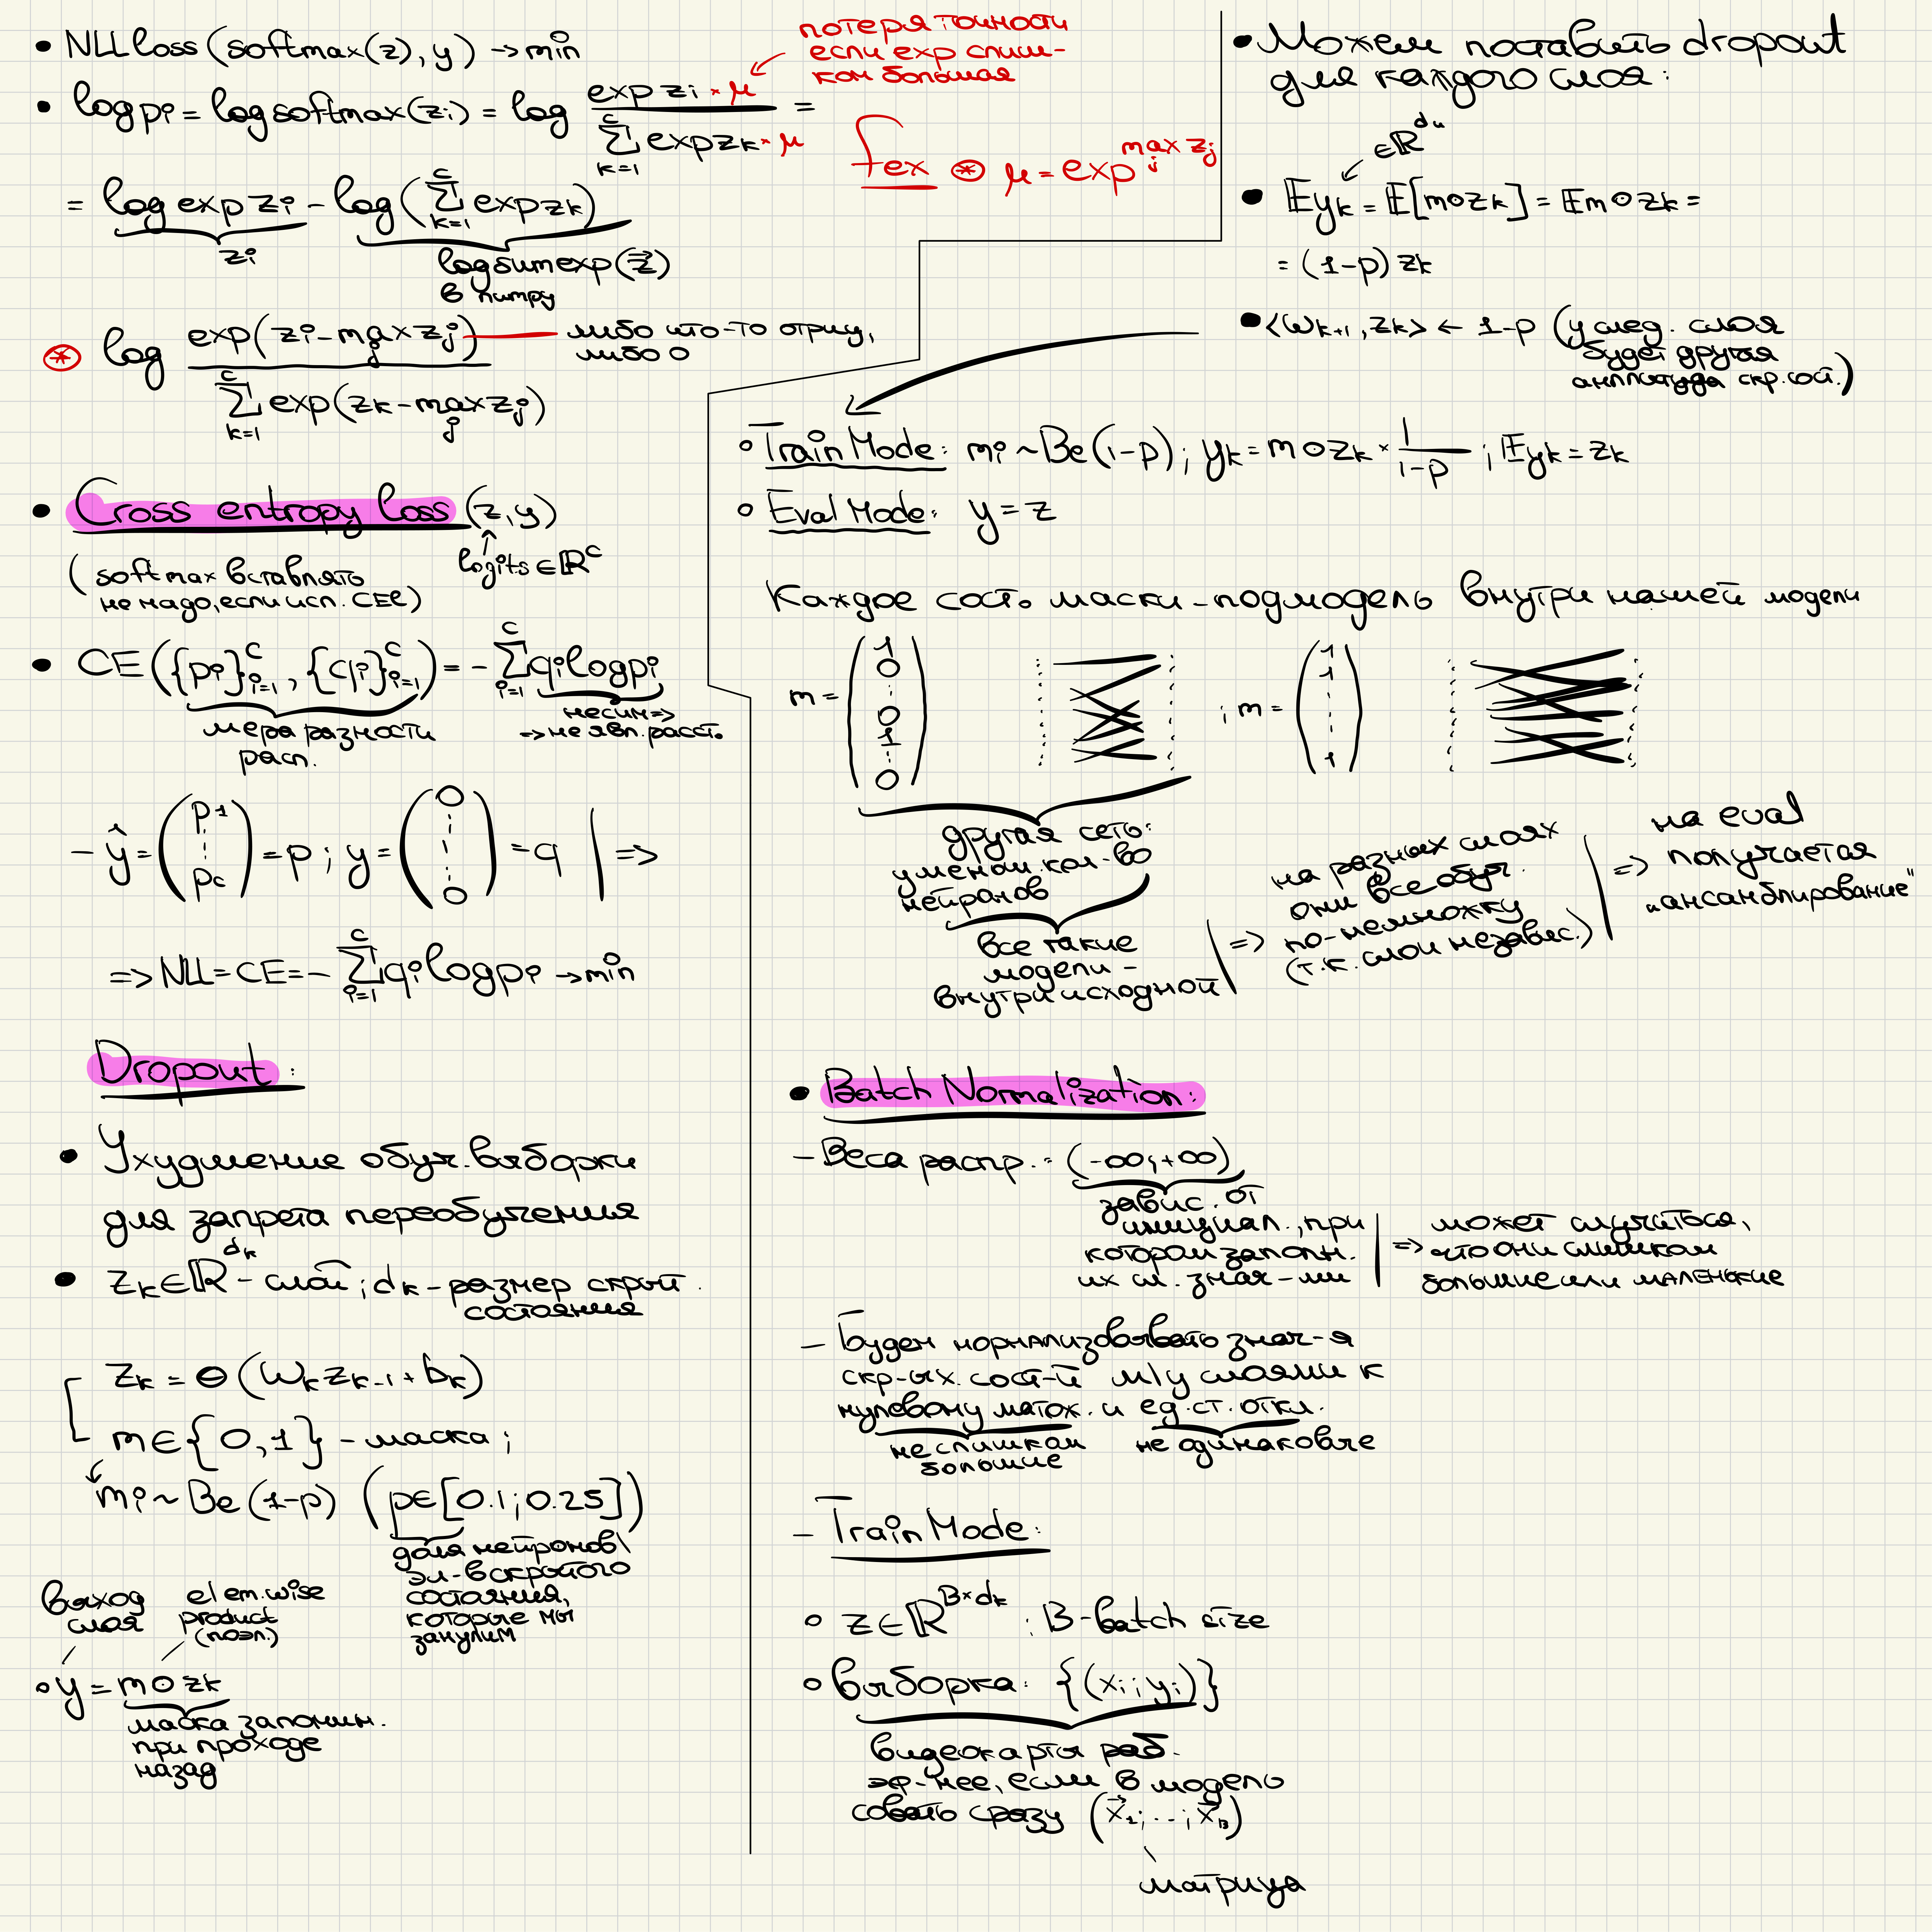 • NLLloss(softmax(z), y) → min
потеря точности
если exp слиш-
ком большая
• log pi = log softmax(zi) = log (exp zi · μ) / (∑_{k=1}^{C} exp zk · μ) =
fex ⊛ μ = exp^{max_j zj}
= log exp zi - log(∑_{k=1}^{C} exp zk)
zi
logsumexp(z⃗)
⊛ log (exp(zi - max_j zj)) / (∑_{k=1}^{C} exp(zk - max_j zj))
либо что-то отриц,
либо 0
• Cross entropy loss (z, y)
logits ∈ ℝ^C
( softmax вставлять
не надо, если исп. CEl)
• CE({pi}_{i=1}^{C}, {qi}_{i=1}^{C}) = - ∑_{i=1}^{C} qi log pi
мера разности
расп.
несим =>
=> не явл. расст.
- ŷ = (p1 ⋮ pc) = p ; y = (0 ⋮ 1 ⋮ 0) = q | =>
=> NLL = CE = - ∑_{i=1}^{C} qi log pi → min
Dropout:
• Ухудшение обуч. выборки
для запрета переобучения
• zk ∈ ℝ^{dk} - слой ; dk - размер скрыт.
состояния
zk = σ(Wk zk-1 + bk)
m ∈ {0, 1} - маска ;
mi ~ Be(1-p) (p ∈ [0.1 ; 0.25])
доля нейронов \
эл-в скрытого
состояния,
которые мы
занулим
выход
слоя
elem.wise
product
(поэл.)
∘ y = m ⊙ zk
маска запомин.
при проходе
назад
• Можем поставить dropout
для каждого слоя:
∈ ℝ^{dk}
• 𝔼yk = 𝔼[m ⊙ zk] = 𝔼m ⊙ zk =
= (1-p) zk
• <Wk+1, zk> ← 1-p (у след. слоя
будет другая
амплитуда скр. сост.)
∘ Train Mode: mi ~ Be(1-p) ; yk = m ⊙ zk · 1/(1-p) ; 𝔼yk = zk
∘ Eval Mode: y = z
Каждое сост. маски - подмодель внутри нашей модели
m = (1 0 ⋮ 0 1 ⋮ 0) ; m = (1 1 ⋮ 1)
другая сеть:
уменьш. кол-во
нейронов
все такие
модели -
внутри исходной
=> на разных слоях
они все обуч.
по-немножку
(т.к. слои независ.)
=> на eval
получается
„ансамблирование"
• Batch Normalization:
- Веса распр.: (-∞; +∞)
завис. от
инициал., при
котором заполн.
их сл. знач-ми
=> может случиться,
что они слишком
большие или маленькие
- Будем нормализовывать знач-я
скр-ых. сост-й м/у слоями к
нулевому матож. и ед. ст. откл.
не слишком
большие
не одинаковые
- Train Mode:
∘ z ∈ ℝ^{B×dk} : B - batch size
∘ Выборка: {(xi ; yi)}
видеокарты раб.
эф-нее, если в модель
совать сразу (x⃗1; ...; x⃗B)
матрица